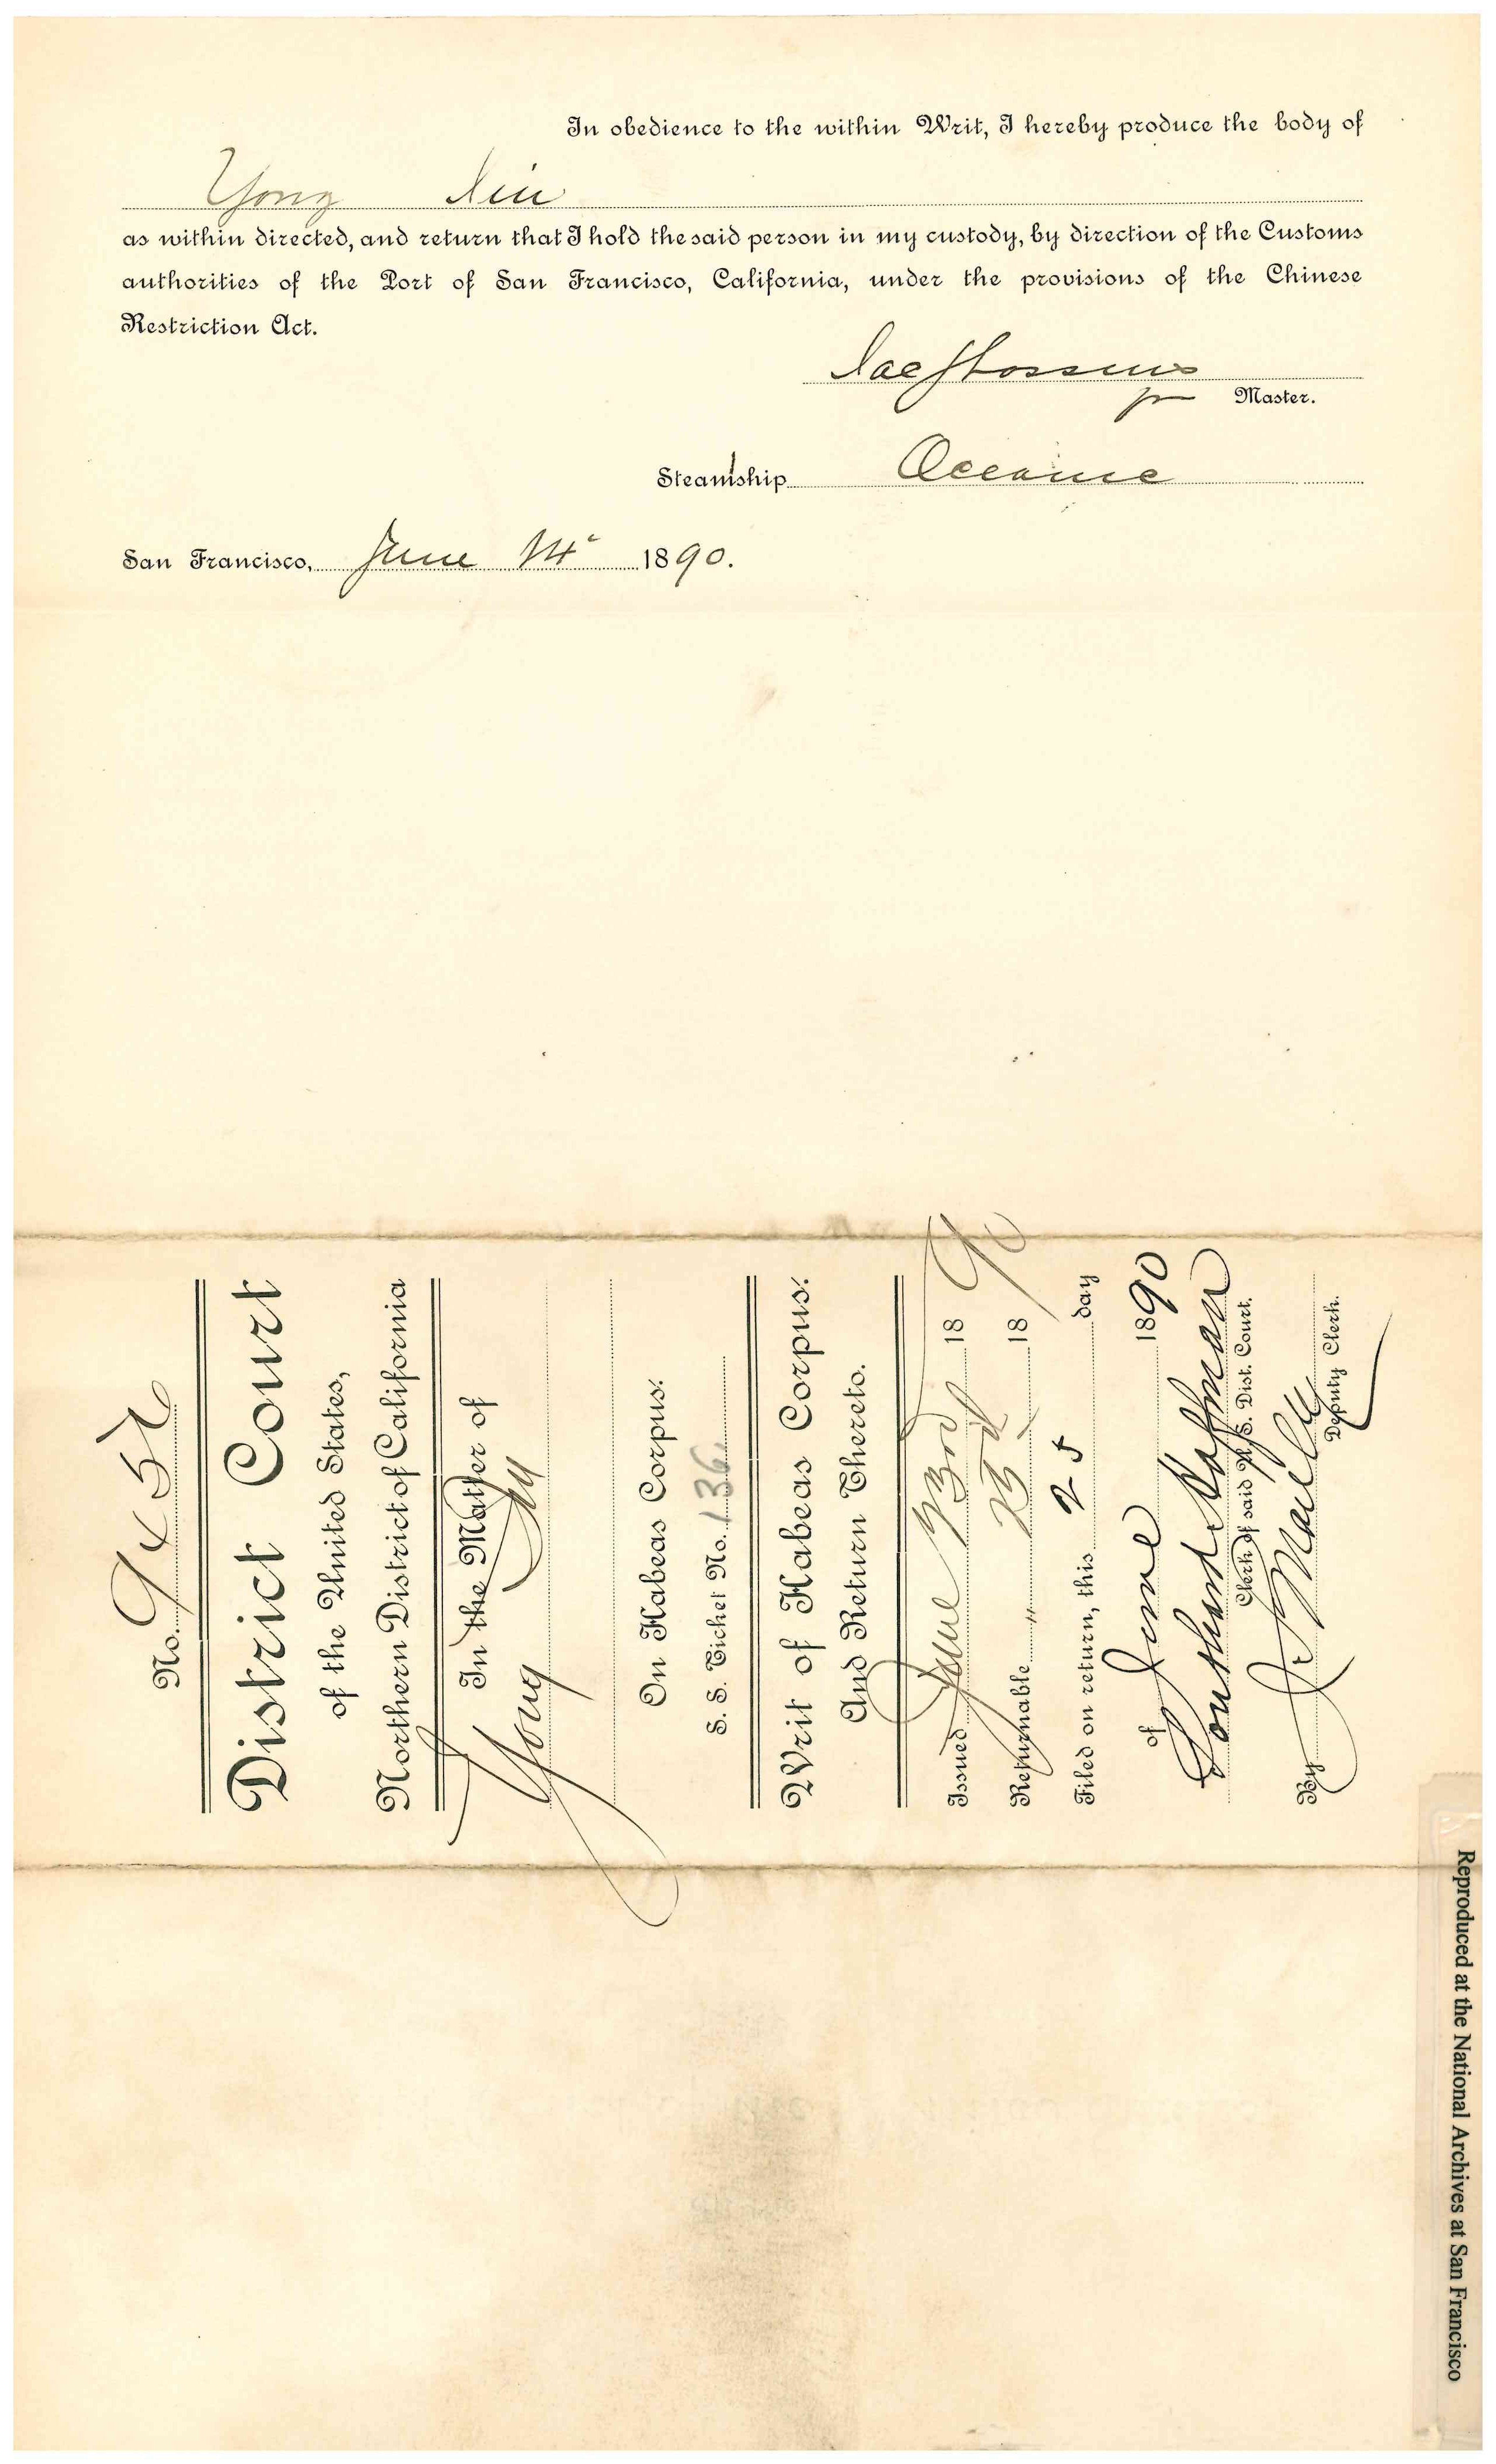 In obedience to the within Writ, I hereby produce the body of
Yong
as within directed, and return that I hold the said person in my custody, by direction of the Customs
authorities of the Port of San Francisco, California, under the provisions of the Chinese
Restriction Act.
Master.
Steamship Oceanic
San Francisco, June 14 1890.
No. 9457
District Court
of the United States,
Northern District of California
In the Matter of
Yong
On Habeas Corpus.
S. S. Ticket No. 136
Writ of Habeas Corpus.
And Return Thereto.
Issued June 23rd 1890
Returnable " 23rd 18
Filed on return, this 25 day
of June 1890
Southard Hoffman
Clerk of said U. S. Dist. Court.
By
Deputy Clerk.
Reproduced at the National Archives at San Francisco